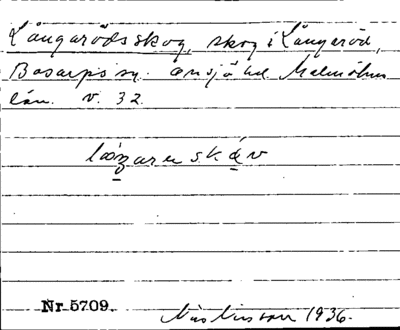 Långarödsskog, skog i Långaröd,
Bosarps sn. Onsjö hd Malmöhus
län. v. 32.
skáv
Nr 5709. Nils Nilsson 1936.